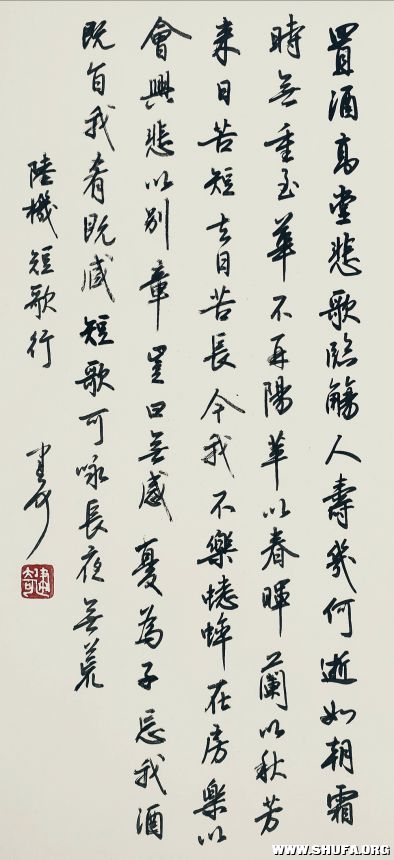 置酒高堂悲歌臨觴人壽幾何逝如朝霜
時無重至華不再陽苹以春暉蘭以秋芳
来日苦短去日苦長今我不樂蟋蟀在房樂以
會興悲以别章豈曰無感憂為子忘我酒
既旨我肴既臧短歌可咏長夜無荒
陸機短歌行
建奇
WWW.SHUFA.ORG